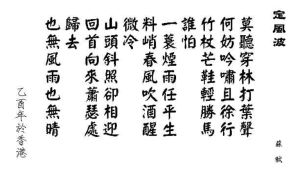 定風波
蘇軾
莫聽穿林打葉聲
何妨吟嘯且徐行
竹杖芒鞋輕勝馬
誰怕
一蓑煙雨任平生
料峭春風吹酒醒
微冷
山頭斜照卻相迎
回首向來蕭瑟處
歸去
也無風雨也無晴
乙酉年於香港